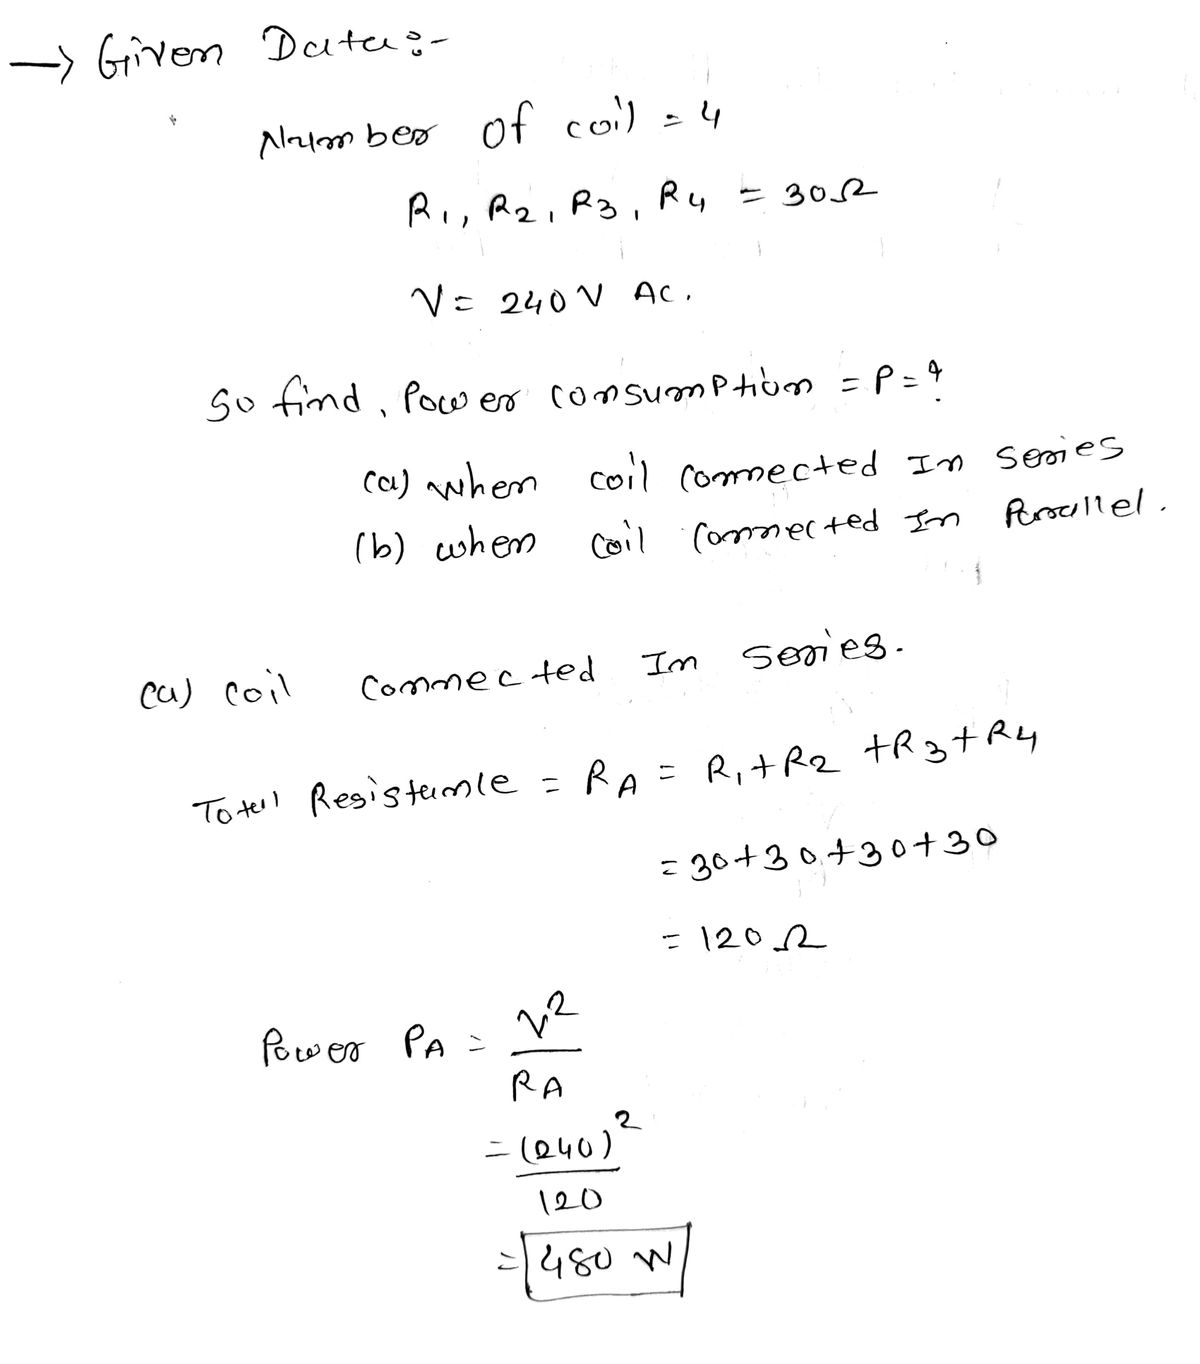 → Given Data:-
Number of coil = 4
R1, R2, R3, R4 = 30Ω
V = 240 V AC.
So find, Power consumption = P = ?
(a) when coil connected In series
(b) when coil connected In Parallel.
(a) coil connected In series.
Total Resistance = RA = R1 + R2 + R3 + R4
= 30 + 30 + 30 + 30
= 120 Ω
Power PA = V²/RA
= (240)²/120
= 480 W